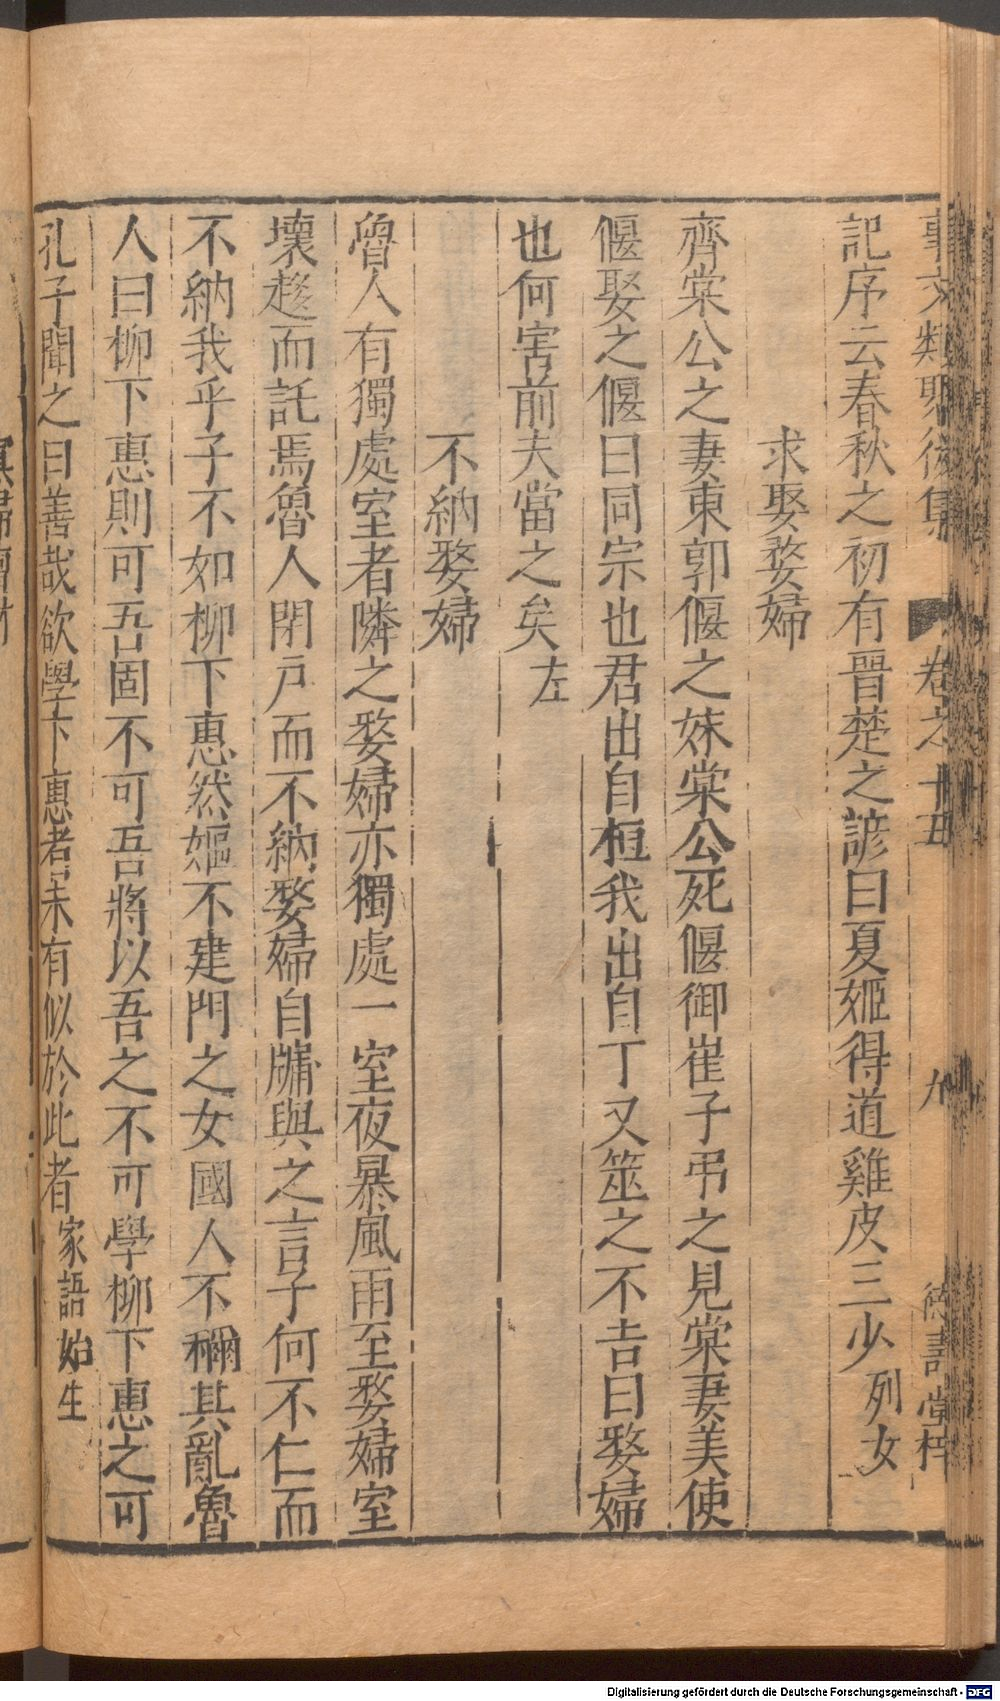 事文類聚後集 卷之十五 九 德壽堂梓
記序云春秋之初有晉楚之諺曰夏姬得道雞皮三少列女
求娶嫠婦
齊棠公之妻東郭偃之妹棠公死偃御崔子弔之見棠妻美使
偃娶之偃曰同宗也君出自桓我出自丁又筮之不吉曰嫠婦
也何害前夫當之矣左
不納嫠婦
魯人有獨處室者隣之嫠婦亦獨處一室夜暴風雨至嫠婦室
壞趍而託焉魯人閉戶而不納嫠婦自牖與之言子何不仁而
不納我乎子不如柳下惠然嫗不建門之女國人不稱其亂魯
人曰柳下惠則可吾固不可吾將以吾之不可學柳下惠之可
孔子聞之曰善哉欲學下惠者未有似於此者家語始生
Digitalisierung gefördert durch die Deutsche Forschungsgemeinschaft - DFG